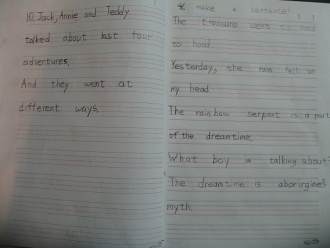 10. Jack, Annie and Teddy
talked about last four
adientures.
And they went at
different ways.
* make a sentence!
The treasure went to hand
to hand.
Yesterday, the rain fell on
my head
The rainbow serpent is a part
of the dreamtime.
What boy is talking about,
The dreamtime is aborigines
myth.